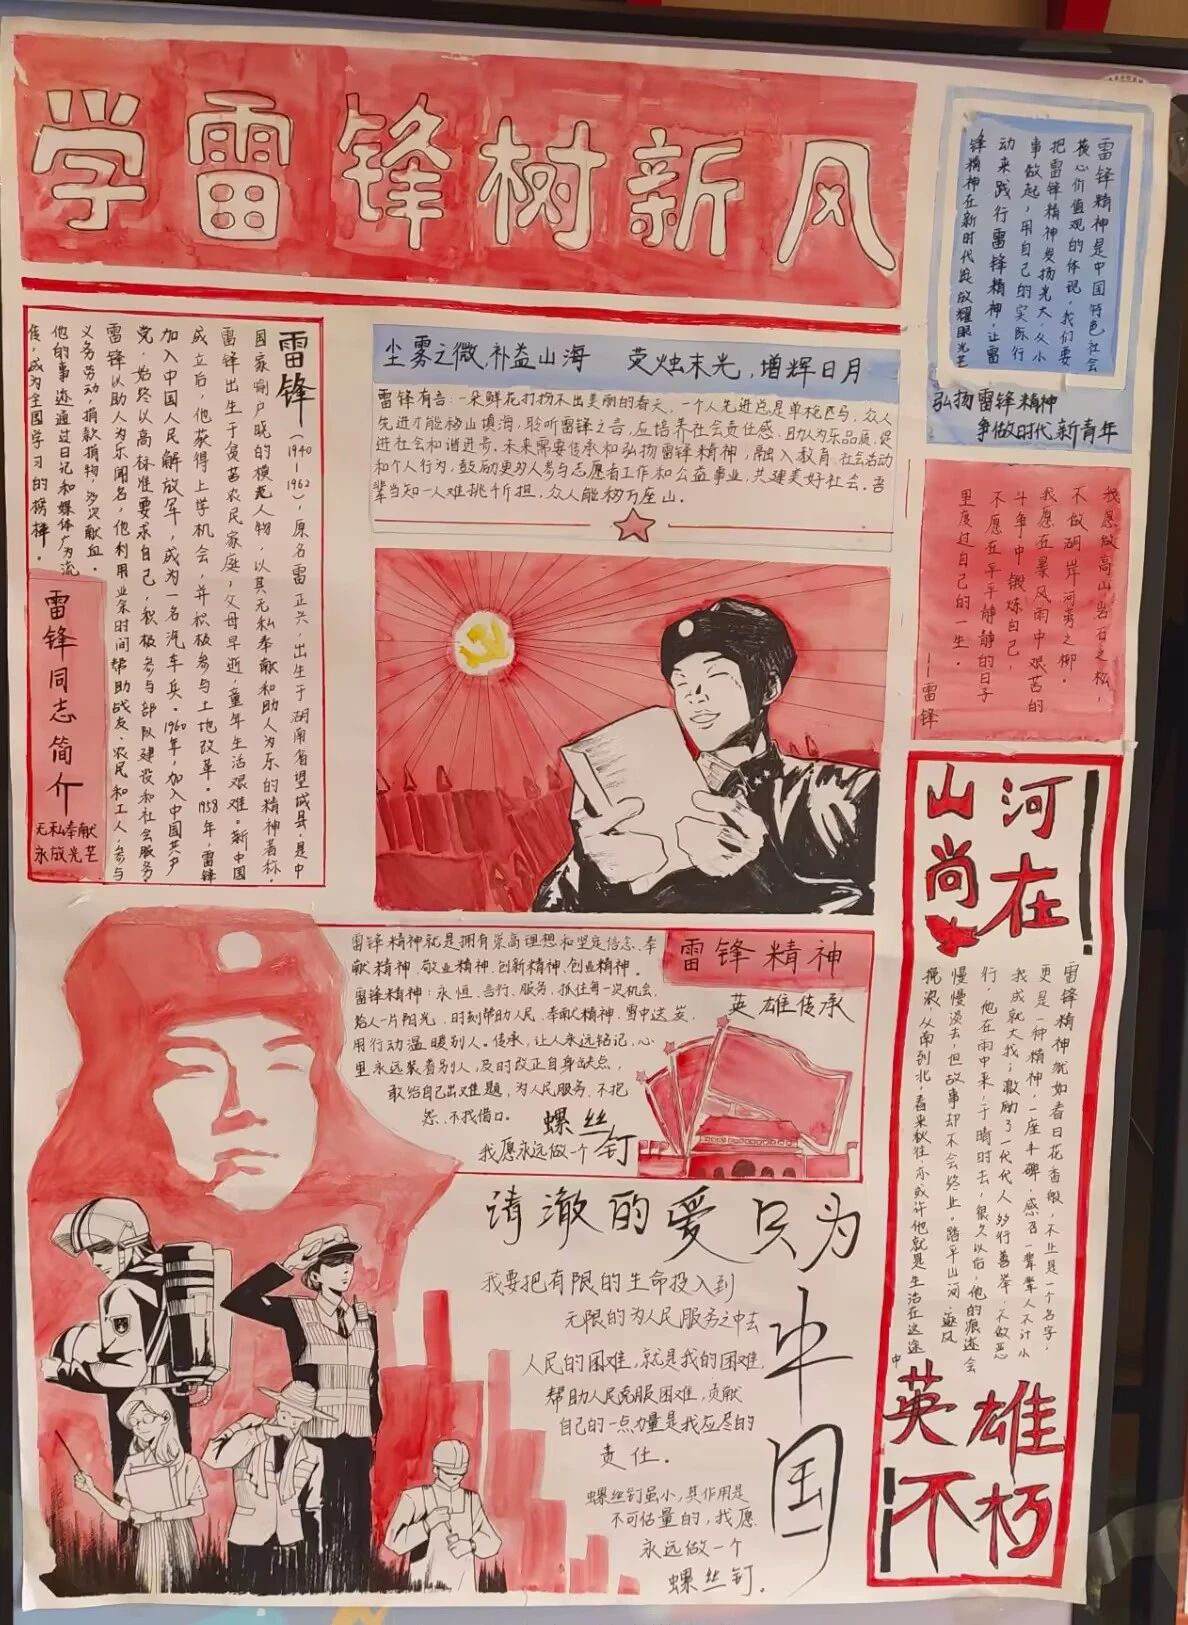 学雷锋树新风
雷锋精神是中国特色社会
核心价值观的体现，我们要
把雷锋精神发扬光大，从小
事做起，用自己的实际行
动来践行雷锋精神，让雷
锋精神在新时代绽放耀眼光芒
弘扬雷锋精神
争做时代新青年
雷锋（1940—1962），原名雷正兴，出生于湖南省望城县，是中
国家喻户晓的模范人物，以其无私奉献和助人为乐的精神著称。
雷锋出生于贫苦农民家庭，父母早逝，童年生活艰难。新中国
成立后，他获得上学机会，并积极参与土地改革。1958年，雷锋
加入中国人民解放军，成为一名汽车兵。1960年，加入中国共产
党，始终以高标准要求自己，积极参与部队建设和社会服务。
雷锋以助人为乐闻名，他利用业余时间帮助战友、农民和工人，参与
义务劳动，捐款捐物，多次献血。
他的事迹通过日记和媒体广为流
传，成为全国学习的榜样。
雷锋同志简介
无私奉献
永放光芒
尘雾之微，补益山海 荧烛末光，增辉日月
雷锋有言：一朵鲜花打扮不出美丽的春天，一个人先进总是单枪匹马，众人
先进才能移山填海，聆听雷锋之音，应培养社会责任感，助人为乐品质，促
进社会和谐进步。未来需要传承和弘扬雷锋精神，融入教育、社会活动
和个人行为，鼓励更多人参与志愿者工作和公益事业，共建美好社会。吾
辈当知一人难挑千斤担，众人能移万座山。
我愿做高山岩石之松，
不做湖岸河旁之柳。
我愿在暴风雨中艰苦的
斗争中锻炼自己，
不愿在平平静静的日子
里度过自己的一生。
——雷锋
山河
尚在
雷锋精神就如春日花香般，不止是一个名字，
更是一种精神，一座丰碑，感召一辈辈人不计小
我成就大我；激励了一代代人多行善举，不做恶
行，他在雨中来，于晴时去，很久以后，他的痕迹会
慢慢淡去，但故事却不会终止。踏平山河，疾风
挽浪，从南到北，春来秋往，亦或许他就是生活在这途
中
英雄
不朽
雷锋精神就是拥有崇高理想和坚定信念、奉
献精神、敬业精神、创新精神、创业精神。
雷锋精神：永恒、言行、服务、抓住每一次机会，
给人一片阳光，时刻帮助人民、奉献精神，雪中送炭，
用行动温暖别人。传承，让人永远铭记，心
里永远装着别人，及时改正自身缺点，
敢给自己出难题，为人民服务，不抱
怨、不找借口。
我愿永远做一个 螺丝钉
雷锋精神
英雄传承
清澈的爱只为
中国
我要把有限的生命投入到
无限的为人民服务之中去
人民的困难，就是我的困难，
帮助人民克服困难，贡献
自己的一点力量是我应尽的
责任。
螺丝钉虽小，其作用是
不可估量的，我愿
永远做一个
螺丝钉。